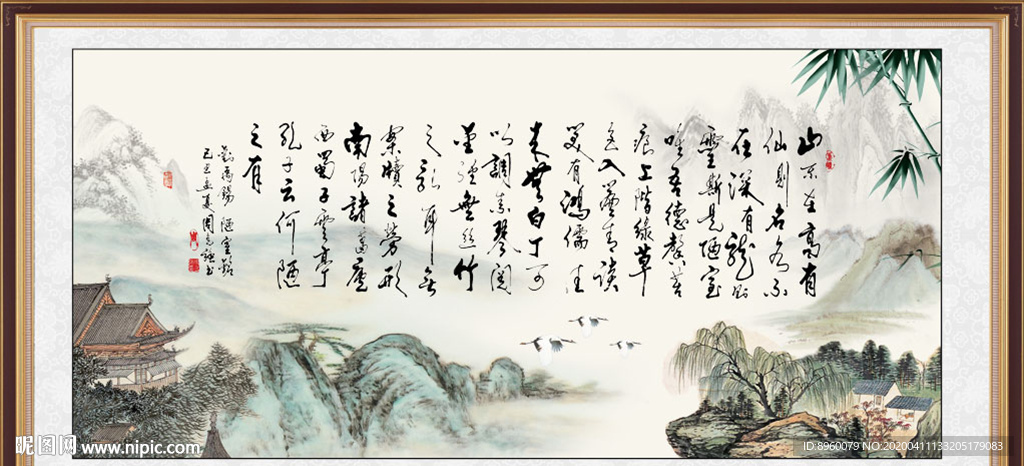 山不在高有
仙則名水不
在深有龍則
靈斯是陋室
唯吾德馨苔
痕上階綠草
色入簾青談
笑有鴻儒往
來無白丁可
以調素琴閱
金經無絲竹
之亂耳無
案牘之勞形
南陽諸葛廬
西蜀子雲亭
孔子云何陋
之有
劉禹錫 陋室銘
昵图网 www.nipic.com
ID:8960079 NO:20200411133205179083